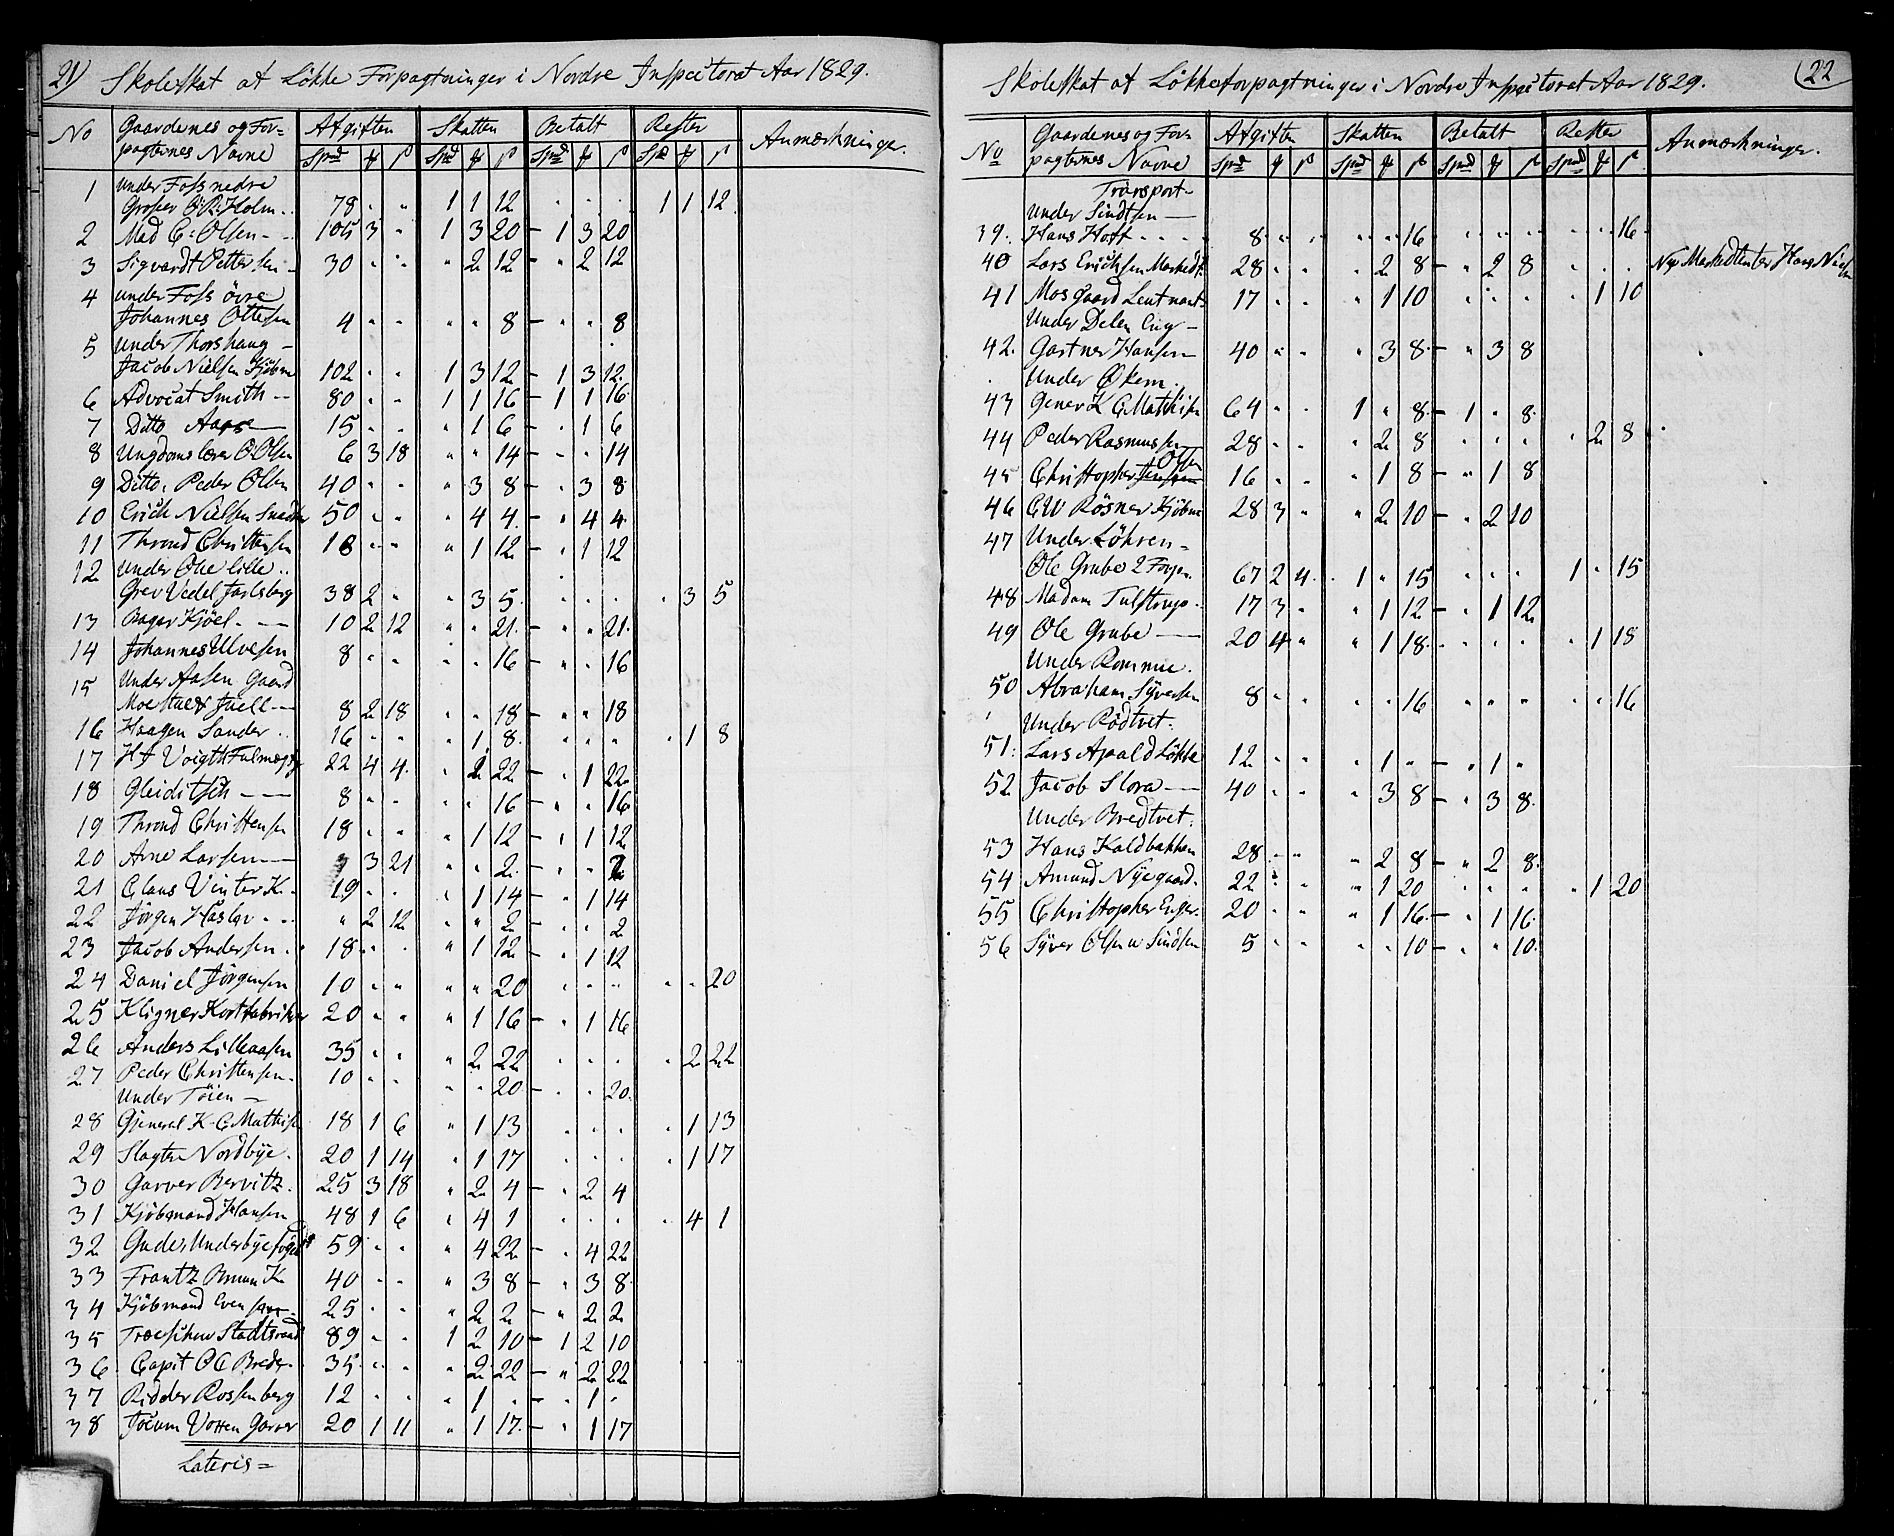 21)
Skoleskat af Løkke Forpagtninger i Nordre Inspectorat Aar 1829.
No | Gaardenes og For= | Afgiften | Skatten | Betalt | Rester | Anmærkninger.
pagternes Navne | Spd | ß | Spd | ß | Spd | ß | Spd | ß
1 under Foss nedre
Holm .. 78 " " 1 1 12 . . . 1 1 12
2 Mad C: Olsen - .. 105 3 " 1 3 20 - 1 3 20
3 Sigvardt Pettersen - 30 " " " 2 12 " 2 12
4 under Foss øvre
Johannes Ottesen 4 " " " " 8 - " " 8
5 under Thorshaug -
Jacob Nielsen Kjøbm 102 " " 1 3 12 - 1 3 12
6 Advocat Smith -- 80 " " 1 1 16 - 1 1 16
7 Ditto 15 " " " 1 6 - " 1 6
8 Ungdomslærer O Olsen 6 3 18 " " 14 - " " 14
9 Ditto, Peder Olsen 40 " " " 3 8 - " 3 8
10 Erich Nielsen 50 " " " 4 4 - " 4 4
11 Thrond Christensen 18 " " " 1 12 - " 1 12
12 under lille ..
Grev Vedel Jarlsberg 38 2 " " 3 5 . . . " 3 5
13 Bager Kjöel - -- 10 2 12 " " 21 - " " 21
14 Johannes Ulvesen 8 " " " " 16 - " " 16
15 under Aasen Gaard
Moestue & Juell -- 8 2 18 " " 18 - " " 18
16 Haagen Sander .. 16 " " " 1 8 " " " " 1 8
17 H J Voigth 22 4 4 " 2 22 - " 1 22
18 Gleiditsch --- 8 " " " " 16 - " " 16
19 Thrond Christensen 18 " " " 1 12 - " 1 12
20 Arne Larsen --- 3 21 " " 2 - " " 2
21 Claus Vinter K - 19 " " " 1 14 - " 1 14
22 Jørgen Haslev .. " 2 12 " " 2 - " " 2
23 Jacob Andersen .. 18 " " " 1 12 - " 1 12
24 Daniel Jørgensen 10 " " " " 20 " " " " " 20
25 Kligner Kortfabrikør 20 " " " 1 16 - " 1 16
26 Anders Lilleaasen 35 " " " 2 22 . . . " 2 22
27 Peder Christensen - 10 " " " " 20 - " " 20
Under Töien -
28 General K. G. Mathisen 18 1 6 " 1 13 . . . " 1 13
29 Slagter Nordbye . 20 1 14 " 1 17 . . . " 1 17
30 Garver Bervitz . 25 3 18 " 2 4 - " 2 4
31 Kjøbmand Hansen 48 1 6 " 4 1 . . . " 4 1
32 Gude, Underbyefoged 59 " " " 4 22 - " 4 22
33 Frantz Bruun K 40 " " " 3 8 - " 3 8
34 Kjøbmand Evensen - 25 " " " 2 2 - " 2 2
35 Troeschew Stadtsraad 89 " " 1 2 10 - 1 2 10
36 Capit O C Breder . 35 " " " 2 22 - " 2 22
37 Ridder Rosenberg 12 " " " 1 " - " 1 "
38 Jocum Votten Garver 20 1 11 " 1 17 - " 1 17
Lateris =
22
Skoleskat af Løkkeforpagtninger i Nordre Inspectorat Aar 1829.
No | Gaardenes og For= | Afgiften | Skatten | Betalt | Rester | Anmærkninger.
pagternes Navne | Spd | ß | Spd | ß | Spd | ß | Spd | ß
Transport -
Under Sindsen --
39. Hans Hoff - - - 8 " " " " 16 " " " " " 16
40 Lars Erichsen Markedt. 28 " " " 2 8 - " 2 8 . . . Nye Markedtenter Hans Nielsen
41 Mosgaard Leutnant 17 " " " 1 10 " " " " 1 10
Under Delen Eng -
42. Gartner Hansen 40 " " " 3 8 - " 3 8
Under Økern .
43 Gener K G Mathisen 64 " " 1 " 8 - 1 " 8
44 Peder Rasmussen 28 " " " 2 8 . . . " 2 8
45 Christopher Olsen 16 " " " 1 8 - " 1 8
46 C W Rösner Kjøbm 28 3 " " 2 10 - " 2 10
47 Under Löhren =
Ole Grube 2 Forp. 67 2 4 1 " 15 . . . 1 " 15
48 Madam Tulstrup . 17 3 " " 1 12 - " 1 12
49 Ole Grube --- 20 4 " " 1 18 . . . " 1 18
Under Rommie .
50 Abraham Syversen 8 " " " " 16 " " " " " 16
Under Rödtvet .
51 Lars Løkke 12 " " " 1 " - " 1 "
52 Jacob Slora --- 40 " " " 3 8 - " 3 8
Under Bredtvet .
53 Hans Kaldbakken 28 " " " 2 8 - " 2 8
54 Amund Nyegaard . 22 " " " 1 20 " " " " 1 20
55 Christopher Enger . 20 " " " 1 16 - " 1 16
56 Syver Olsen u Sindsen 5 " " " " 10 - " " 10